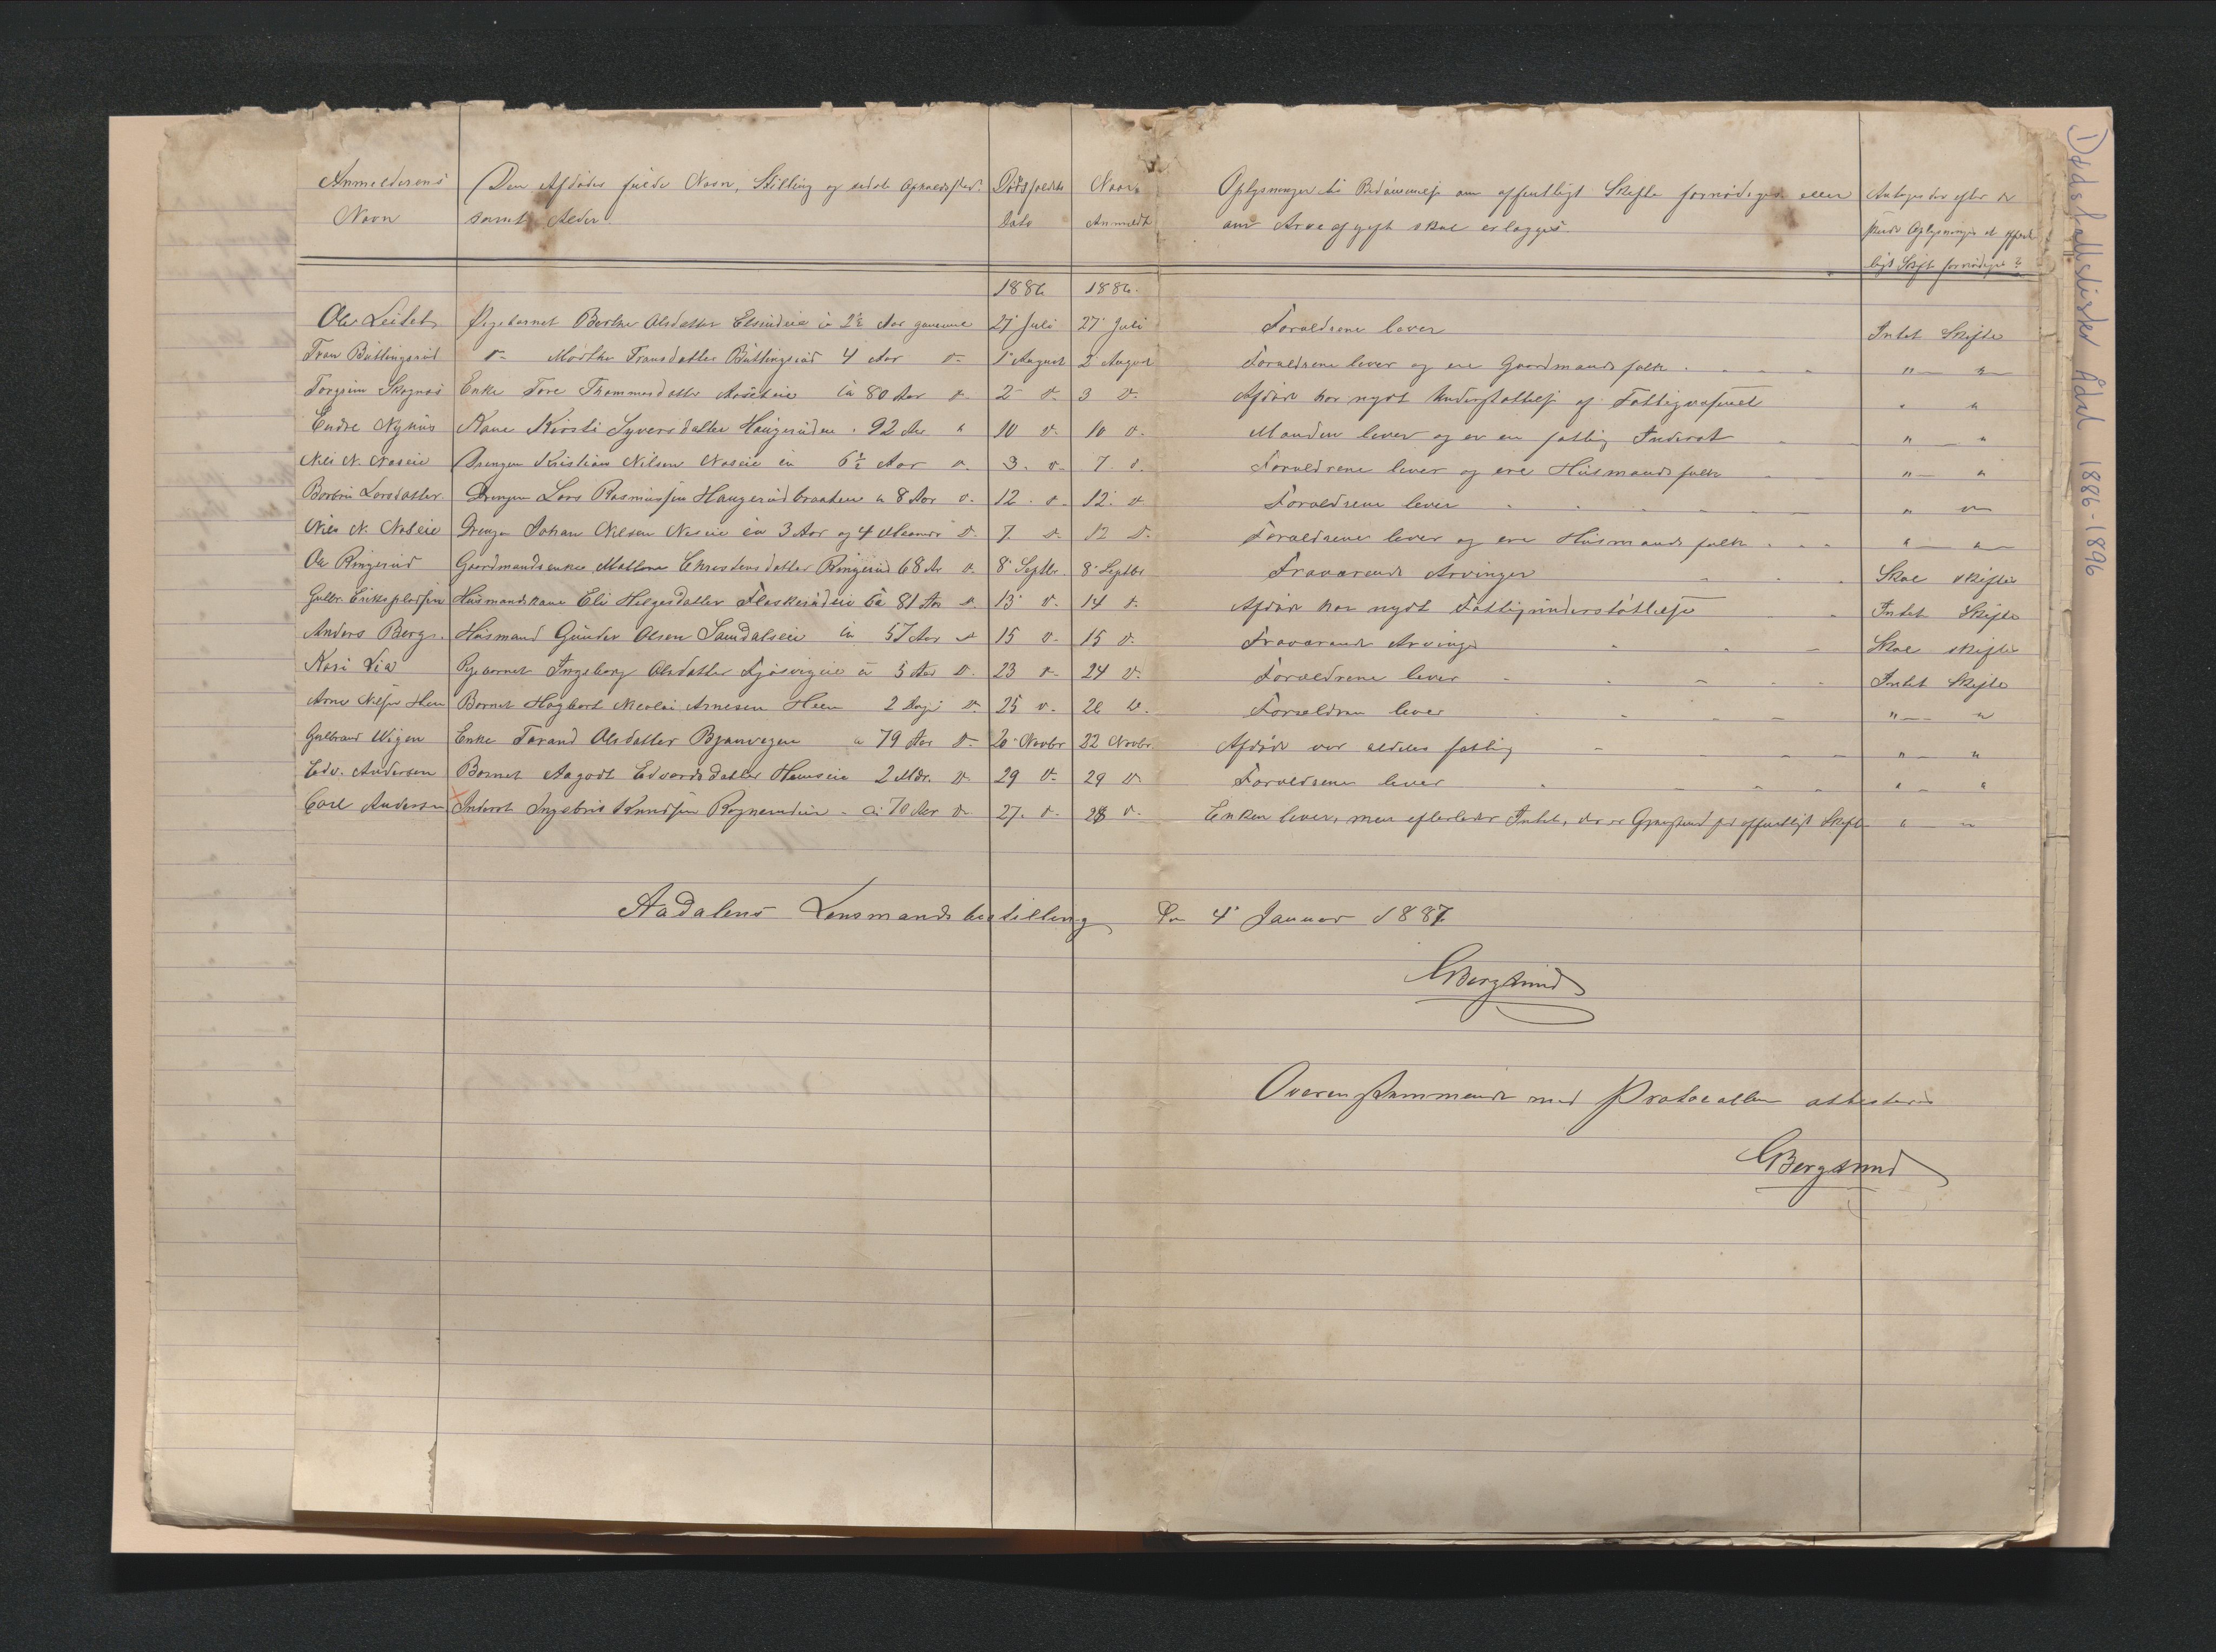 Anmelderens Navn | Den Afdødes fulde Navn, Stilling og sidste Opholdssted samt Alder. | Dødsfaldets Dato | Naar Anmeldt | Oplysninger til Bedømmelse om offentligt Skifte fornødiges eller om Arveafgift skal erlægges | Antages der efter de skede Oplysninger at offentligt Skifte fornødiges?
1886 | 1886.
Ole Leitet | Pigebarnet Berthe Olsdatter Elsrudeie 2½ Aar gammel | 27 Juli | 27 Juli | Forældrene lever | Intet Skifte
Fran Buttingsrud | do Marthe Fransdatter Buttingsrud 4 Aar do | 1 August | 2 August | Forældrene lever og ere Gaardmandsfolk | " "
Torgrim Skagnæs | Enke Tore Thommesdatter Aaseteie ca 80 Aar do | 2 do | 3 do | Afdøde har nydt Understøttelse af Fattigvæsenet | " "
Endre Nyhus | Kone Kirsti Syversdatter Haugerudeie 92 Aar " | 10 do | 10 do | Manden lever og er en fattig Inderst | " "
Nils N. Næseie | Drengen Kristian Nilsen Næseie ca 6½ Aar do | 3 do | 7 do | Forældrene lever og ere Husmandsfolk | " "
Berthe Larsdatter | Drengen Lars Rasmussen Haugerudbraaten ca 8 Aar do | 12 do | 12 do | Forældrene lever | " "
Nils N. Næseie | Drengen Johan Nilsen Næseie ca 3 Aar og 4 Maaneder do | 7 do | 12 do | Forældrene lever og ere Husmandsfolk | " "
Ole Ringerud | Gaardmandsenke Mallene Christensdatter Ringerud 68 Aar do | 8 Septbr. | 8 Septbr | Fraværende Arvinger | Skal skiftes
Gulbr. Eriksplassen | Husmandskone Eli Helgesdatter Flaskerudeie ca 81 Aar do | 13 do | 14 do | Afdøde har nydt Fattigunderstøttelse | Intet Skifte
Anders Bergs. | Husmand Gunder Olsen Sandalseie ca 57 Aar do | 15 do | 15 do | Fraværende Arvinger | Skal skiftes
Kari Lia | Pigebarnet Ingeborg Olsdatter Fjøsvigeie ca 5 Aar do | 23 do | 24 do | Forældrene lever | Intet Skifte
Arne Nilsen Heen | Barnet Hagbart Nicolai Arnesen Heen 2 Dage do | 25 do | 26 do | Forældrene lever | " "
Gulbrand Wigen | Enke Tarand Olsdatter Bjonvegen ca 79 Aar do | 20 Novbr | 22 Novbr. | Afdøde var aldeles fattig | " "
Edv. Andersen | Barnet Aagodt Edvardsdatter Heenseie 2 Mdr. do | 29 do | 29 do | Forældrene lever | " "
Carl Andersen | Inderst Ingebrit Knudsen Rognerudeie ca 70 Aar do | 27. do | 28 do | Enken lever, men efterlader Intet, der er Gjenstand for offentligt Skifte | " "
Aadalens Lensmandsbestilling den 4 Januar 1887.
GBergsund
Overensstemmende med Protocollen attesteres
GBergsund
Dødsfallslister Ådal 1886-1896